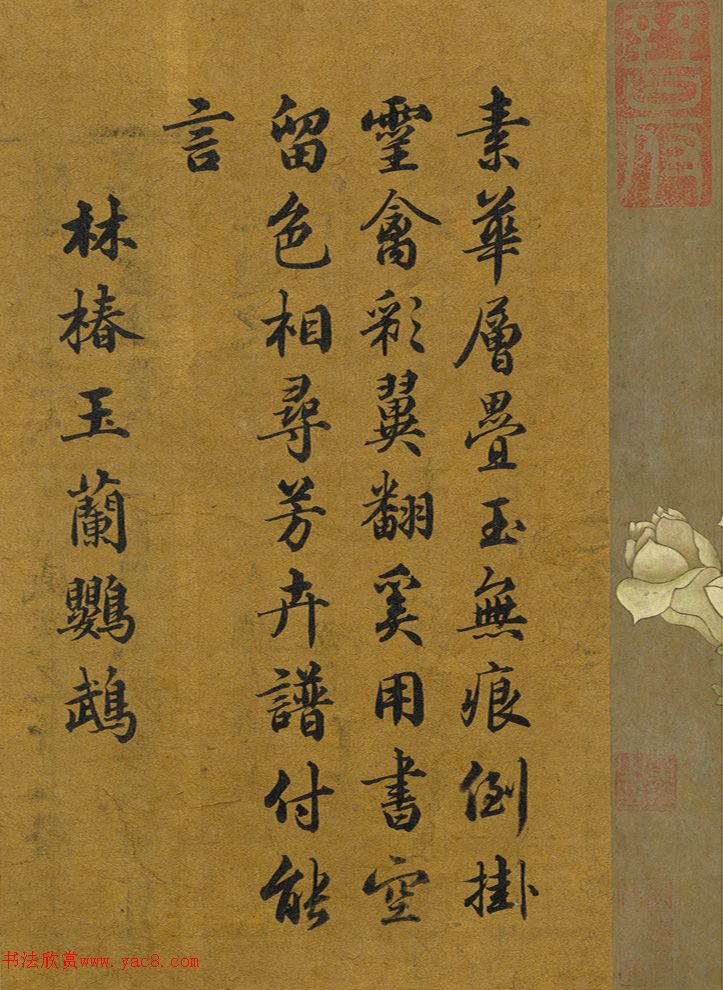 素華層疊玉無痕倒掛
靈禽彩翼翻奚用書空
留色相尋芳卉譜付能
言
林椿玉蘭鸚鵡
书法欣赏www.yac8.com